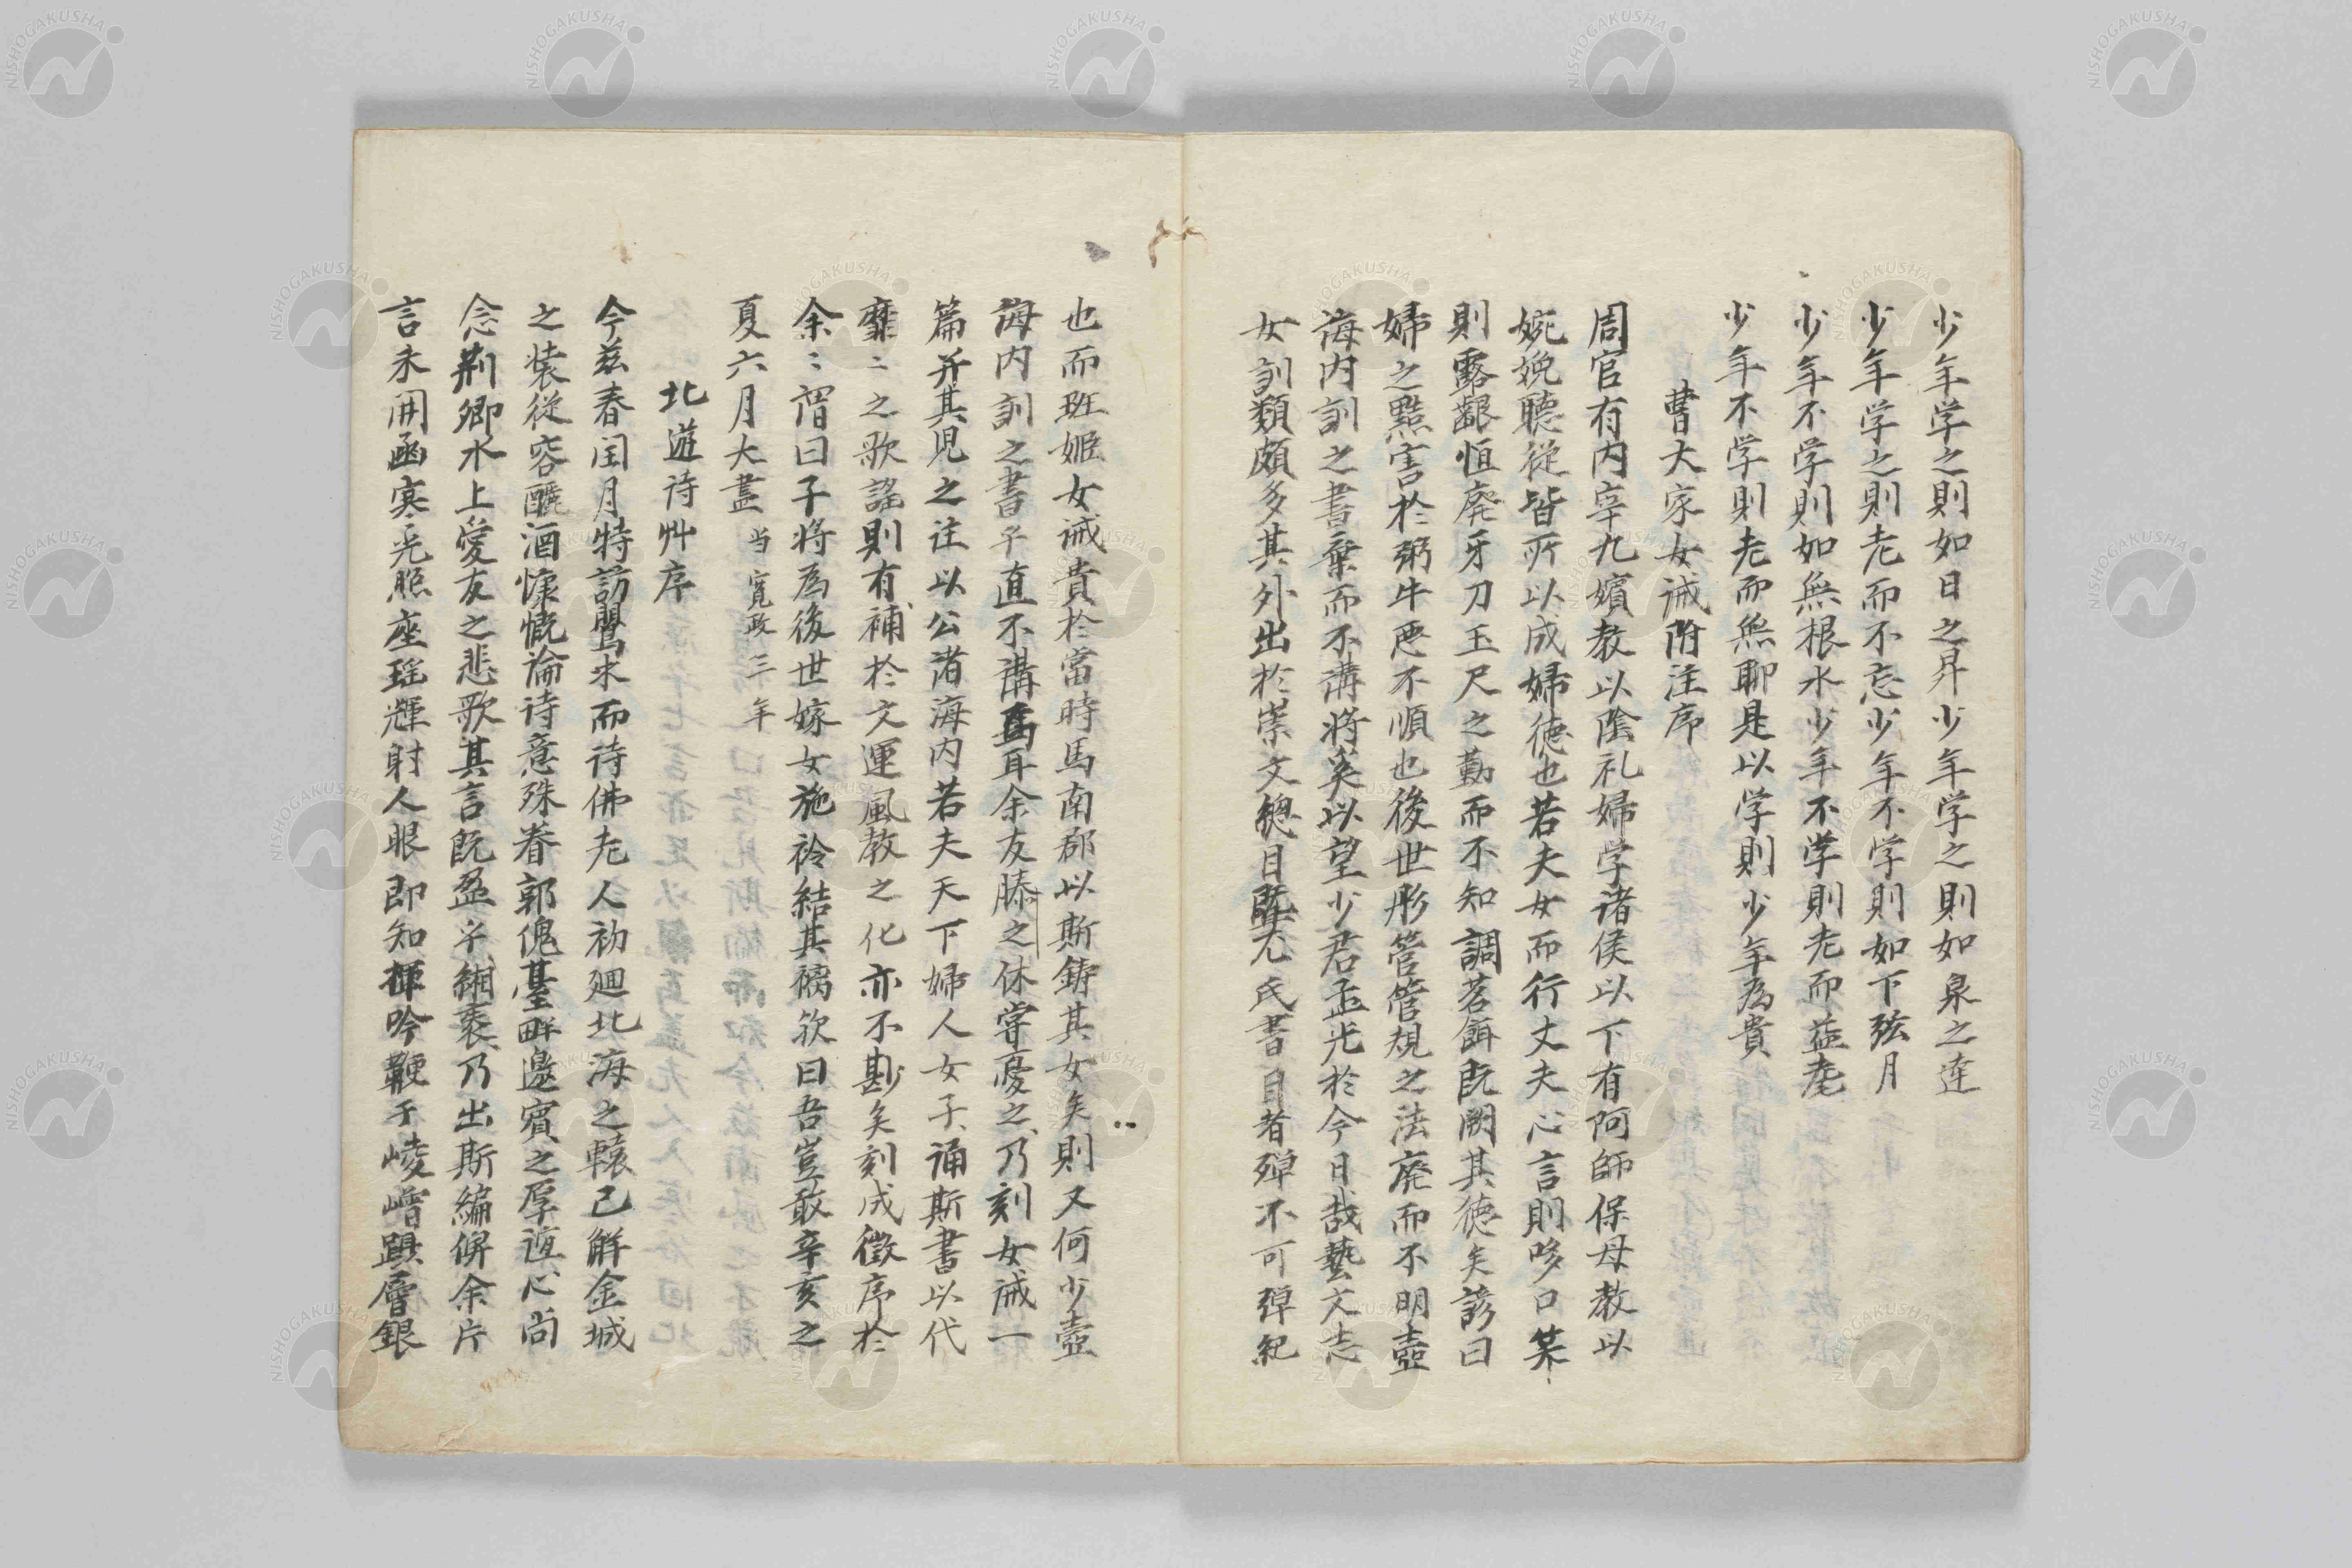 少年学之則如日之昇少年学之則如泉之達
少年学之則老而不忘少年不学則如下弦月
少年不学則如無根水少年不学則老而益耄
少年不学則老而無聊是以学則少年為貴
曹大家女誡附注序
周官有内宰九嬪教以陰礼婦学諸侯以下有阿師保母教以
婉娩聽従皆所以成婦徳也若夫女而行丈夫心言則哆口笑
則露齦恒廃牙刀玉尺之勤而不知調茗餌既闕其徳矣諺曰
婦之黠害於弼牛悪不順也後世彤管管規之法廃而不明壺
海内訓之書棄而不講将奚以望少君孟光於今日哉藝文志
女訓類頗多其外出於崇文総目既尤氏書目者殫不可殫紀
也而班姫女誡貴於當時馬南郡以斯鋳其女矣則又何少壺
海内訓之書乎直不講焉耳余友滕之休嘗憂之乃刻女誡一
篇并其児之注以公渚海内若夫天下婦人女子誦斯書以代
靡〻之歌謡則有補於文運風教之化亦不尠矣刻成徴序於
余〻謂曰子将為後世嫁女施衿結其褵歟曰吾豈敢辛亥之
夏六月大盡 当寛政三年
北遊詩艸序
今茲春閏月特訪鸎求而待佛老人初廻北海之轅已解金城
之装従容醼酒慷慨論詩意殊眷郭傀䑓畔邀賓之厚誼心尚
念荊卿水上愛友之悲歌其言既盈乎緗袠乃出斯編俾余片
言未開函寒光照座瑶輝射人眼即知揮吟鞭于崚嶒躡層銀